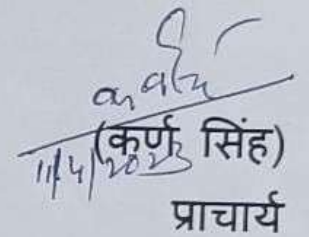 11/4/2023
(कर्ण सिंह)
प्राचार्य